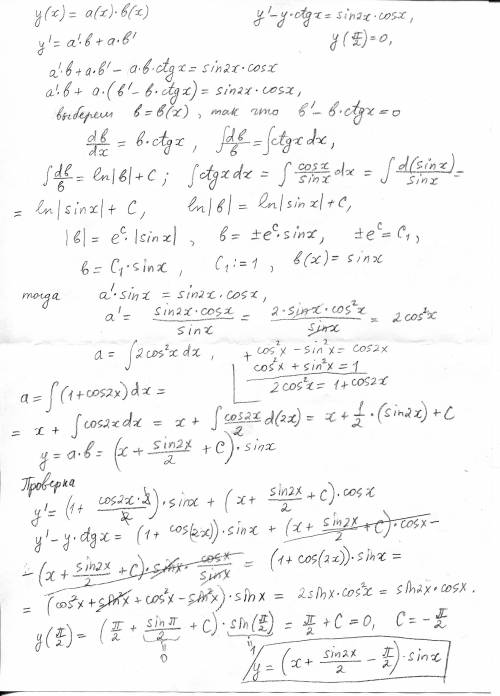 y(x) = a(x)·b(x)    y' − y·ctgx = sin2x·cosx,
y' = a'·b + a·b'    y(π/2) = 0,
a'·b + a·b' − a·b·ctgx = sin2x·cosx
a'·b + a·(b' − b·ctgx) = sin2x·cosx,
выберем b = b(x), так что b' − b·ctgx = 0
db/dx = b·ctgx, ∫db/b = ∫ctgx dx,
∫db/b = ln|b| + C; ∫ctgx dx = ∫cosx/sinx dx = ∫d(sinx)/sinx =
= ln|sinx| + C, ln|b| = ln|sinx| + C,
|b| = e^c·|sinx|, b = ±e^c·sinx, ±e^c = C₁,
b = C₁·sinx, C₁:=1, b(x) = sinx
тогда a'·sinx = sin2x·cosx,
a' = sin2x·cosx/sinx = 2·sinx·cos²x/sinx = 2cos²x
a = ∫2cos²x dx, + cos²x − sin²x = cos2x
cos²x + sin²x = 1
a = ∫(1+cos2x)dx = 2cos²x = 1+cos2x
= x + ∫cos2x dx = x + ∫cos2x/2 d(2x) = x + 1/2·(sin2x) + C
y = a·b = (x + sin2x/2 + C)·sinx
Проверка
y' = (1 + cos2x·2/2)·sinx + (x + sin2x/2 + C)·cosx
y' − y·ctgx = (1 + cos(2x))·sinx + (x + sin2x/2 + C)·cosx −
− (x + sin2x/2 + C)·sinx·cosx/sinx = (1 + cos(2x))·sinx =
= (cos²x + sin²x + cos²x − sin²x)·sinx = 2sinx·cos²x = sin2x·cosx.
y(π/2) = (π/2 + sinπ/2 + C)·sin(π/2) = π/2 + C = 0, C = −π/2
0 1
y = (x + sin2x/2 − π/2)·sinx